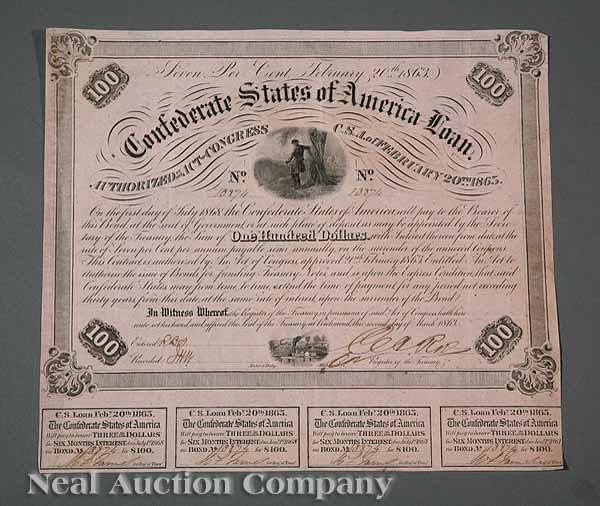 100 100
Seven Per Cent. February, 20th 1863.
Confederate States of America Loan.
AUTHORIZED BY ACT OF CONGRESS C.S.A. of FEBRUARY 20TH 1863.
No. No.
13374 13374
On the first day of July 1868 the Confederate States of America, will pay to the Bearer of
this Bond, at the seat of Government or at such place of deposit as may be appointed by the Secre-
tary of the Treasury, the Sum of One Hundred Dollars, with Interest thereon from date, at the
rate of Seven per Cent per annum, payable semi annually on the surrender of the annexed Coupons.
This Contract is authorized by An Act of Congress, approved 20th February 1863 Entitled "An Act to
authorize the issue of Bonds for funding Treasury Notes" and is upon the Express Condition, that said
Confederate States may from time to time, extend the time of payment for any period not exceeding
thirty years from this date, at the same rate of interest, upon the surrender of this Bond.
In Witness Whereof, the Register of the Treasury, in pursuance of said Act of Congress, hath here-
unto set his hand and affixed the Seal of the Treasury, at Richmond, this second day of March 1863.
100 100
Entered
Recorded
Register of the Treasury.
C.S. Loan Feby. 20th 1863. C.S. Loan Feby. 20th 1863. C.S. Loan Feby. 20th 1863. C.S. Loan Feby. 20th 1863.
The Confederate States of America The Confederate States of America The Confederate States of America The Confederate States of America
Will pay to bearer THREE 50/100 DOLLARS Will pay to bearer THREE 50/100 DOLLARS Will pay to bearer THREE 50/100 DOLLARS Will pay to bearer THREE 50/100 DOLLARS
for SIX MONTHS INTEREST due July 1st 1868 for SIX MONTHS INTEREST due Jany. 1st 1868 for SIX MONTHS INTEREST due July 1st 1867 for SIX MONTHS INTEREST due Jany. 1st 1867
on BOND No. 13374 for $100. on BOND No. 13374 for $100. on BOND No. 13374 for $100. on BOND No. 13374 for $100.
Neal Auction Company